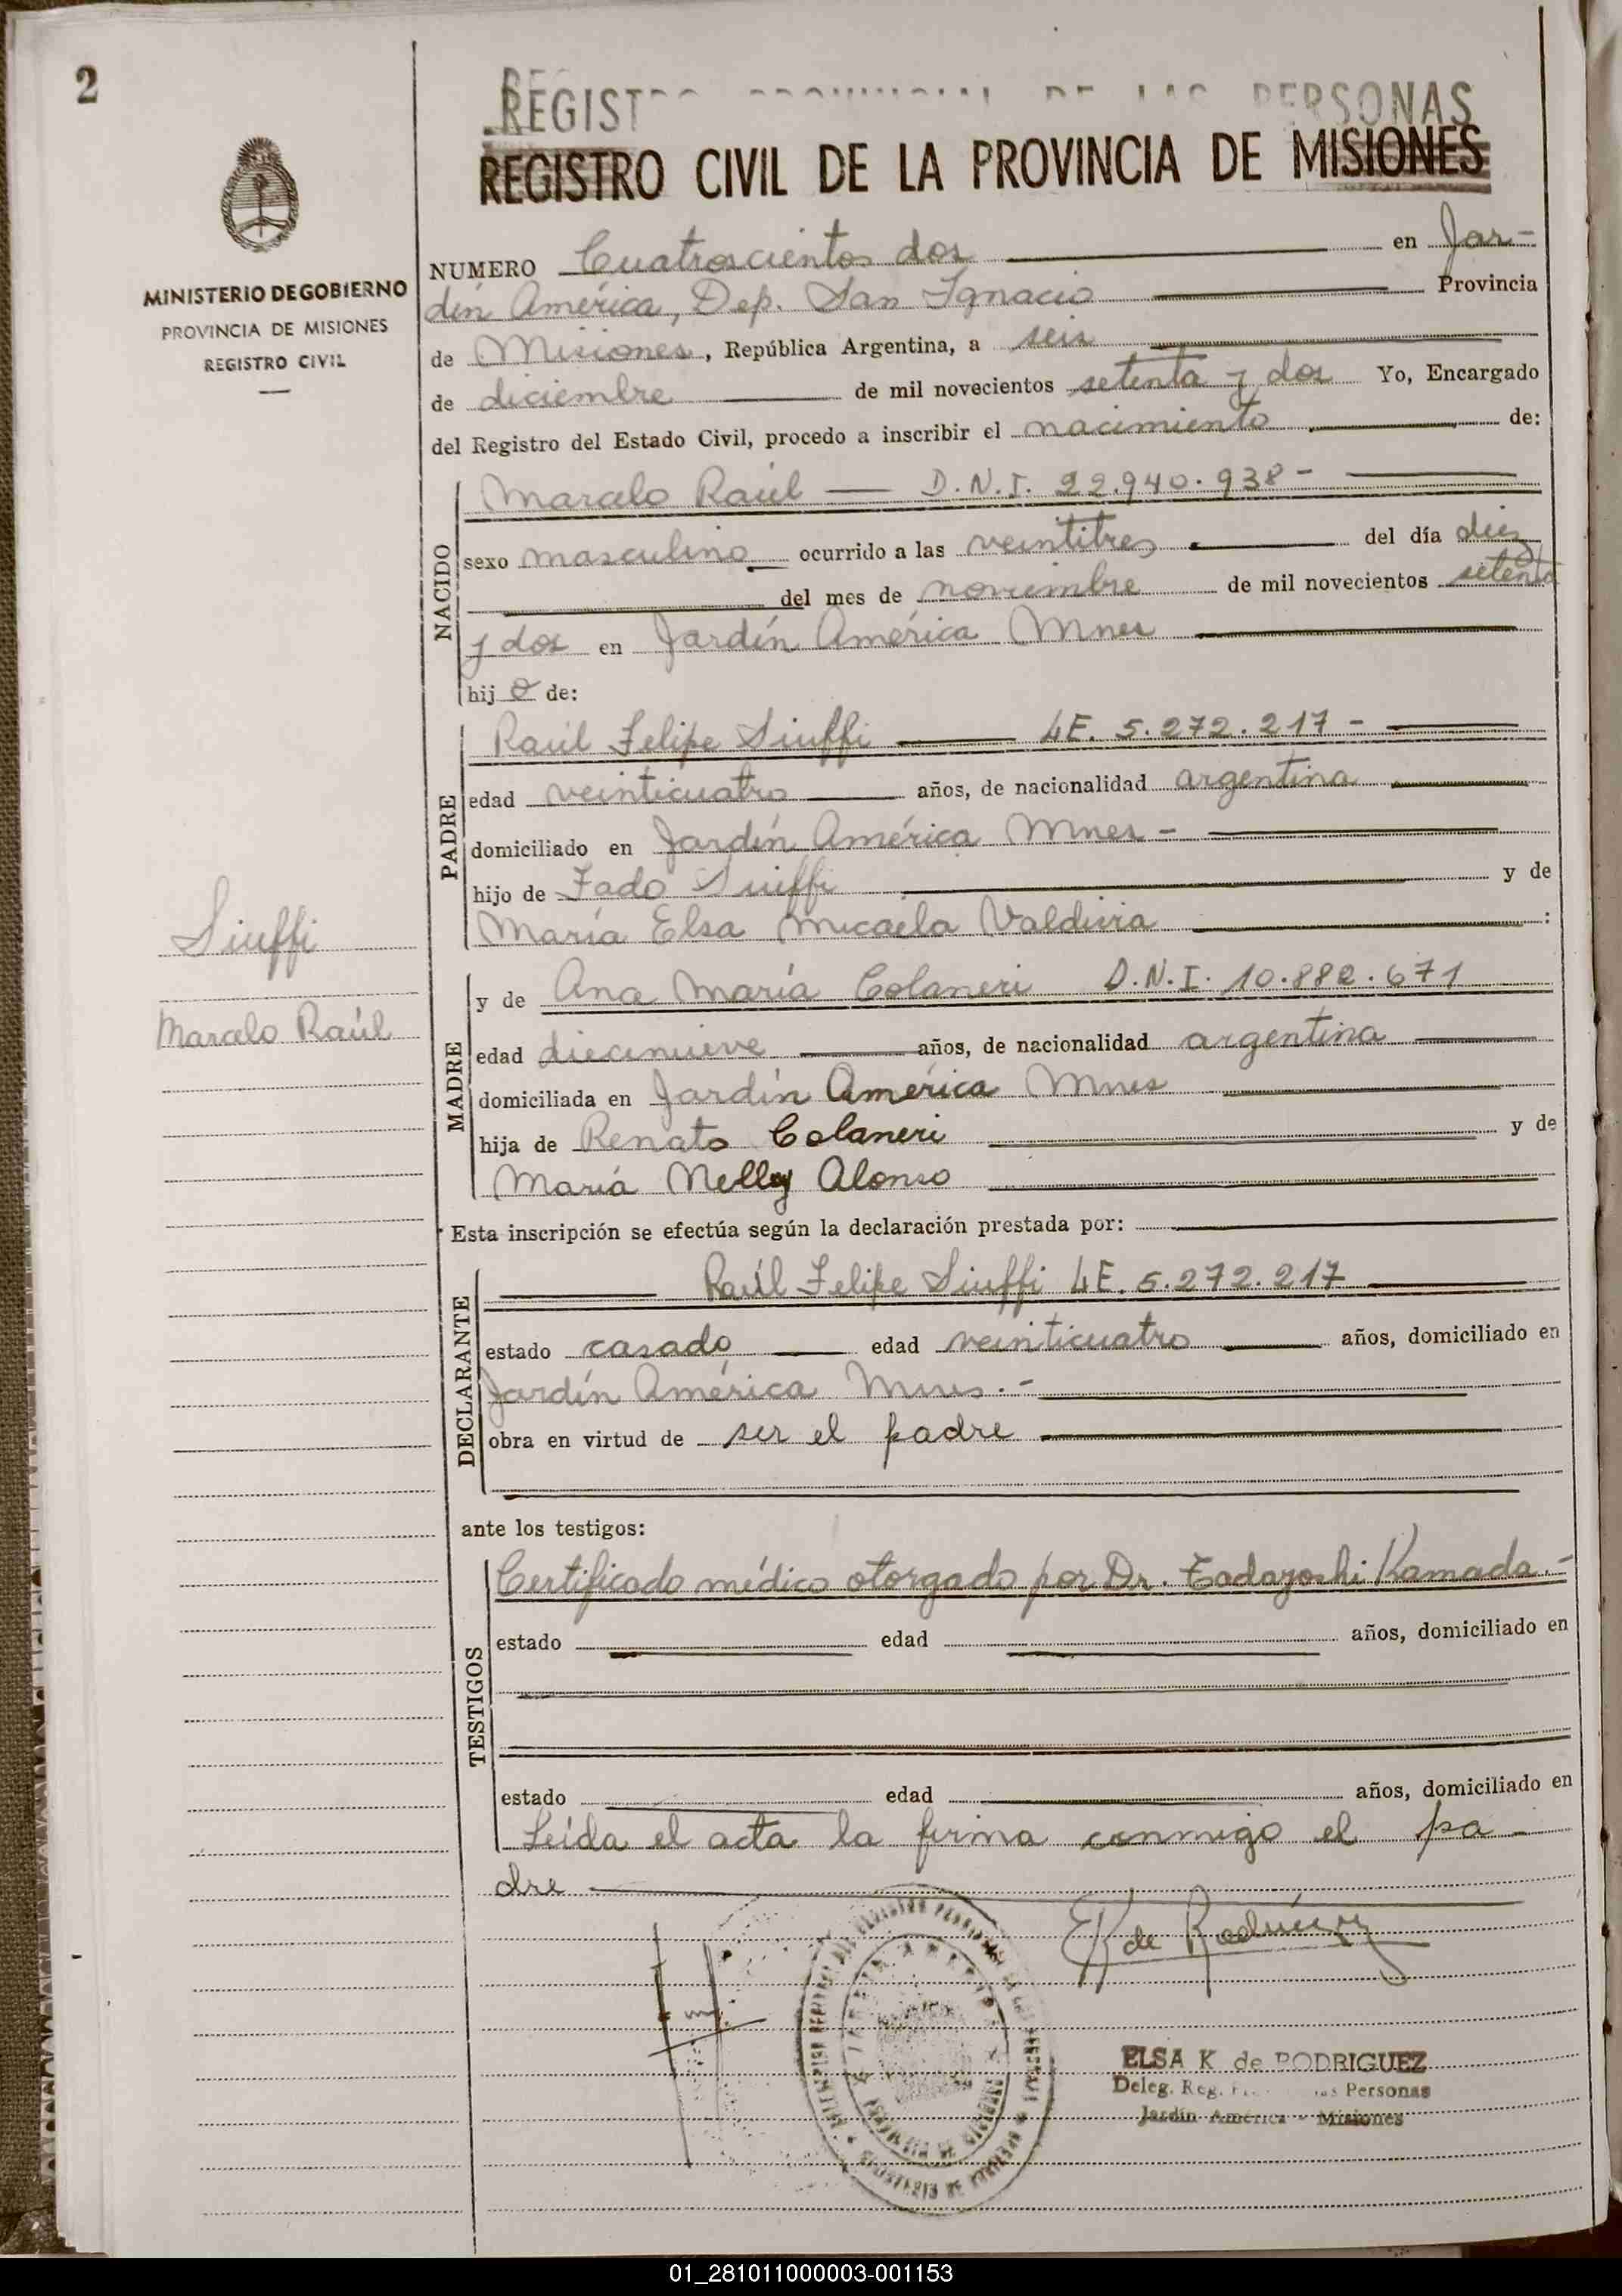 2
REGIST PERSONAS
REGISTRO CIVIL DE LA PROVINCIA DE MISIONES
MINISTERIO DE GOBIERNO
PROVINCIA DE MISIONES
REGISTRO CIVIL
NUMERO Cuatroscientos dos en Jar-
dín América, Dep. San Ignacio Provincia
de Misiones, República Argentina, a seis
de diciembre de mil novecientos setenta y dos Yo, Encargado
del Registro del Estado Civil, procedo a inscribir el nacimiento de:
NACIDO
Marcelo Raúl — D.N.I. 22.940.938-
sexo masculino ocurrido a las veintitres del día diez
del mes de noviembre de mil novecientos setenta
y dos en Jardín América Mnes
hijo de:
PADRE
Raúl Felipe Siuffi LE. 5.272.217-
edad veinticuatro años, de nacionalidad argentina
domiciliado en Jardín América Mnes-
hijo de Fado Siuffi y de
María Elsa Micaela Valdivia :
Siuffi
Marcelo Raúl
MADRE
y de Ana María Colaneri D.N.I. 10.882.671
edad diecinueve años, de nacionalidad argentina
domiciliada en Jardín América Mnes
hija de Renato Colaneri y de
María Nelly Alonso
Esta inscripción se efectúa según la declaración prestada por:
DECLARANTE
Raúl Felipe Siuffi LE. 5.272.217
estado casado edad veinticuatro años, domiciliado en
Jardín América Mnes.-
obra en virtud de ser el padre
ante los testigos:
TESTIGOS
Certificado médico otorgado por Dr. Tadayoshi Kamada.-
estado edad años, domiciliado en
estado edad años, domiciliado en
Leída el acta la firma conmigo el pa-
dre
EK de Rodríguez
ELSA K de RODRIGUEZ
Deleg. Reg. Personas
Jardín América - Misiones
01_281011000003-001153